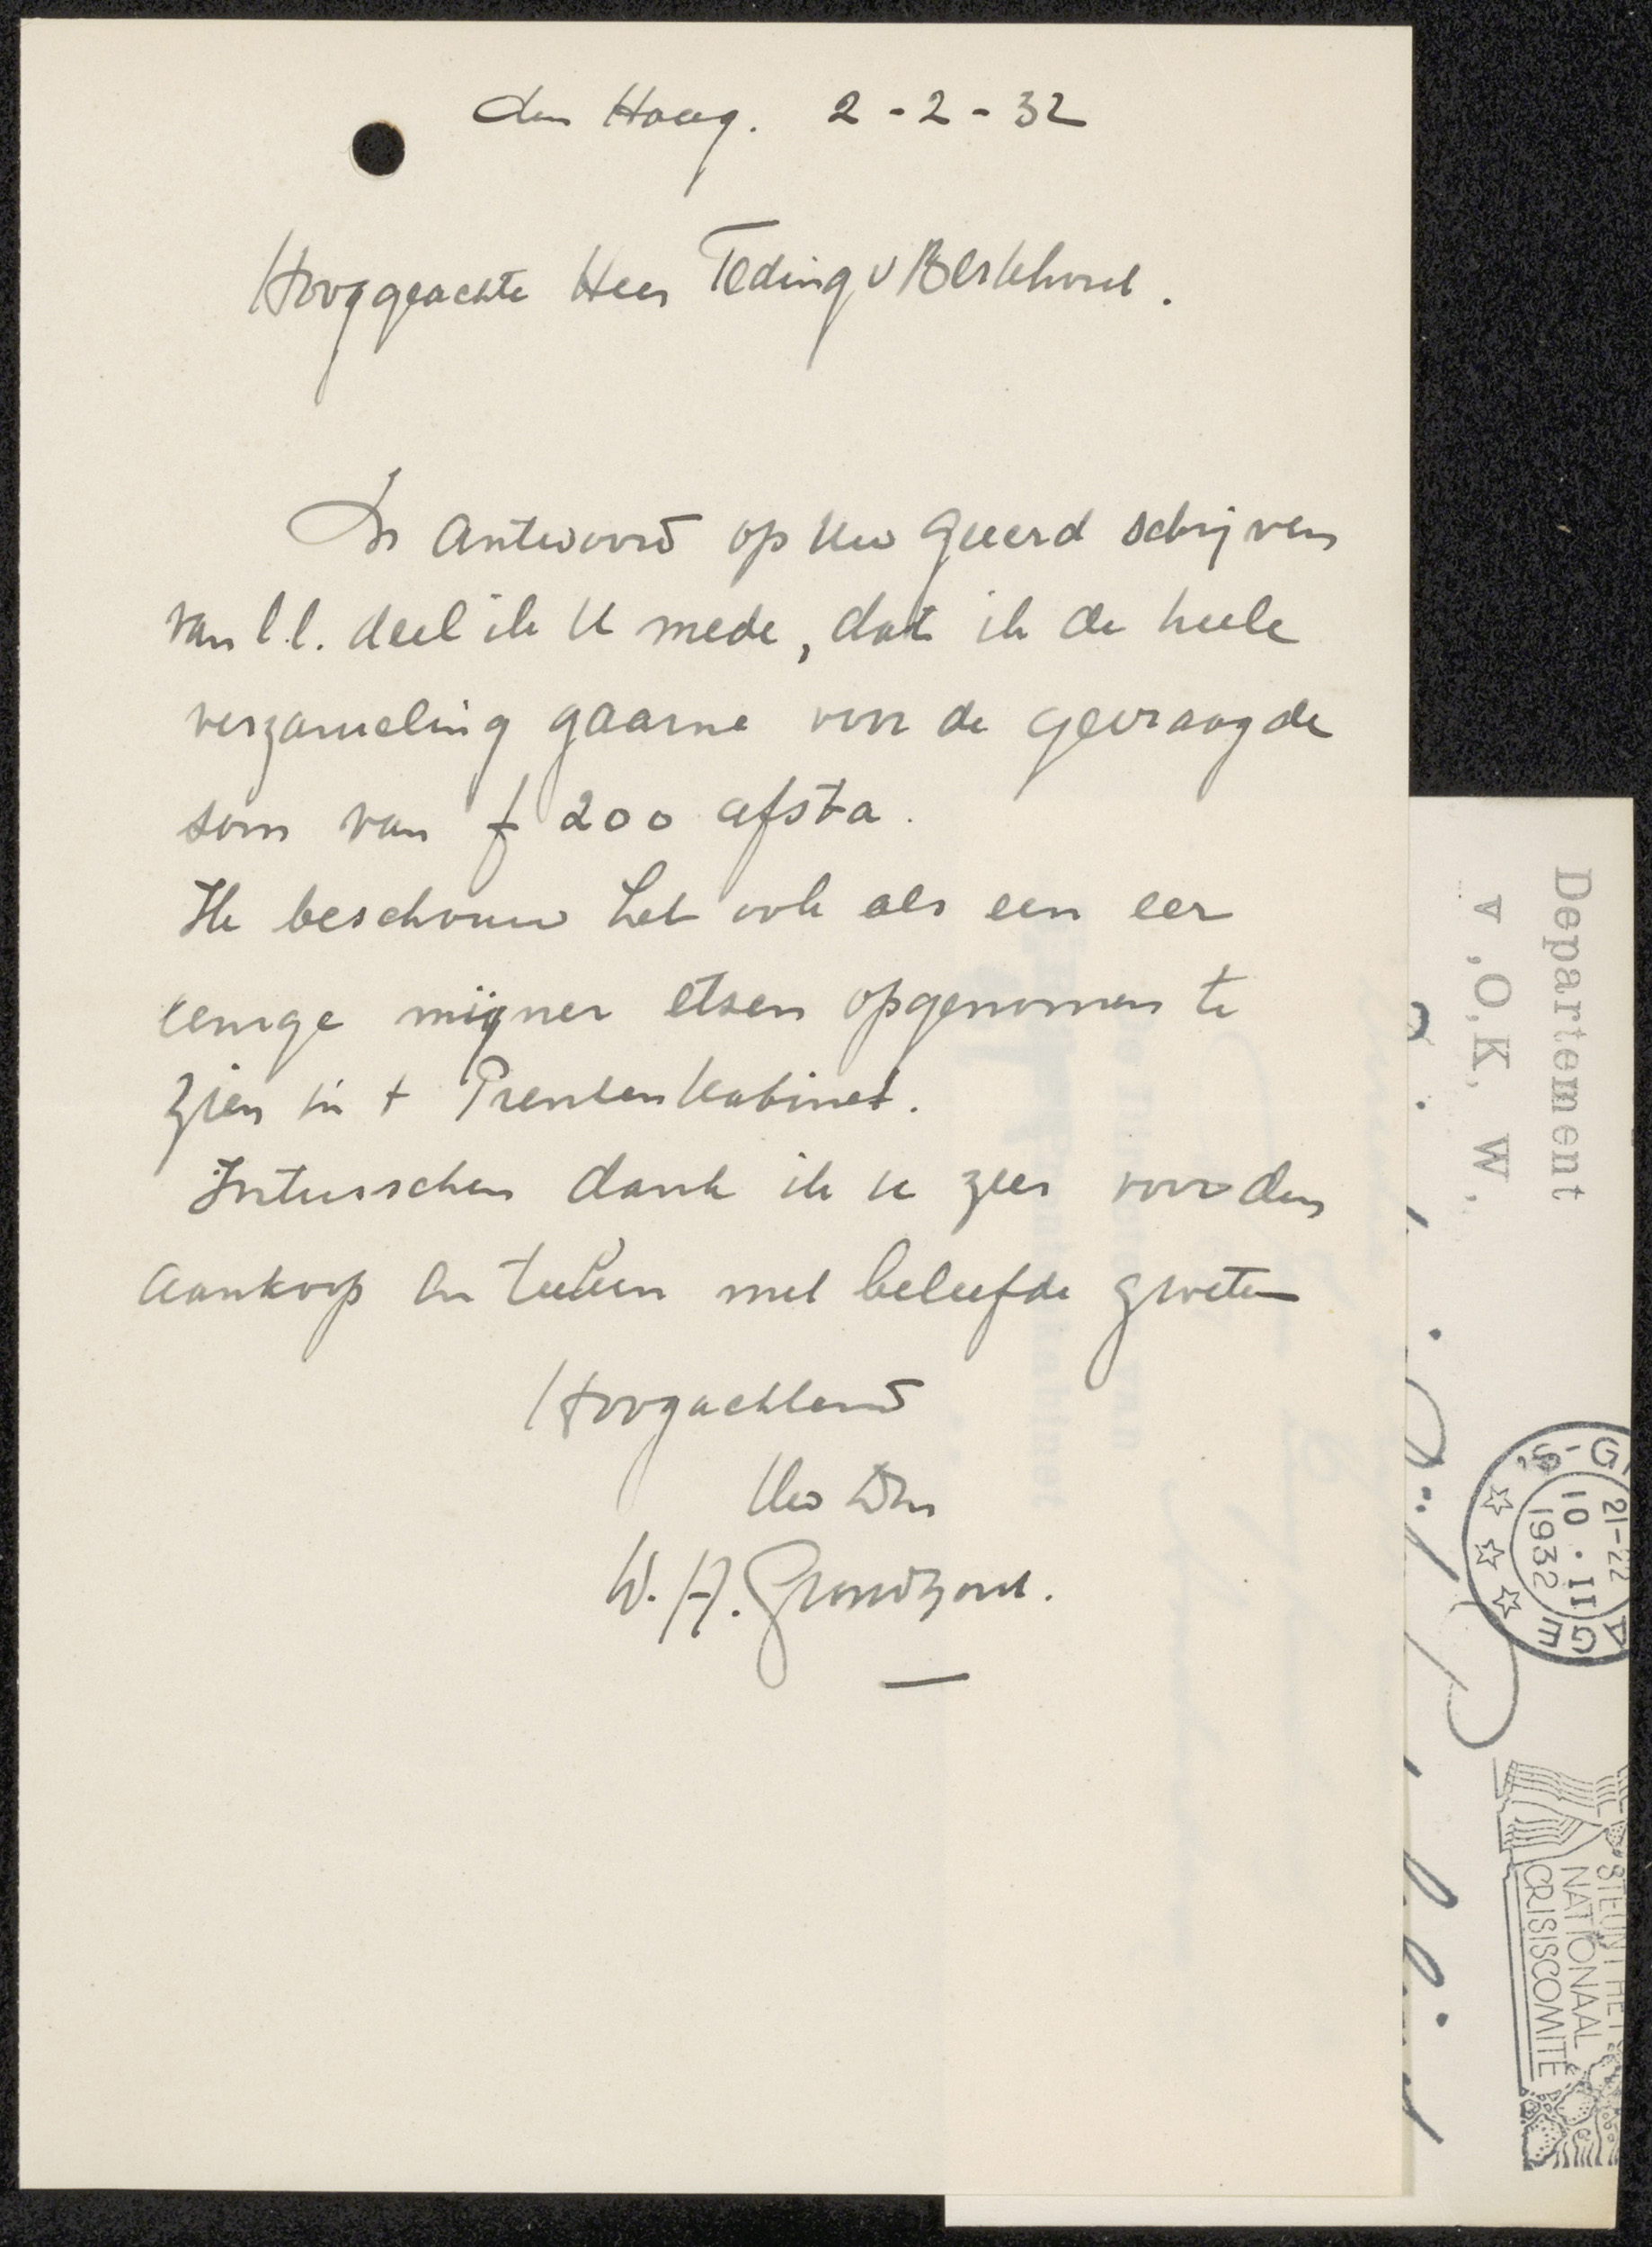 den Haag. 2-2-32
Hooggeachte Heer Teding v Berkhout.
In antwoord op Uw geeerd schrijven
van l.l. deel ik U mede, dat ik de heele
verzameling gaarne voor de gevraagde
som van f 200 afsta.
Ik beschouw het ook als een eer
eenige mijner etsen opgenomen te
zien in t Prentenkabinet.
Intusschen dank ik u zeer voor den
aankoop en teeken met beleefde groeten
Hoogachtend
Uw Dn
W. A. Grondhout.
Departement
v.O.K. W.
'S-G
21-22
10.II
1932
AGE
STEUNT HET
NATIONAAL
CRISISCOMITE